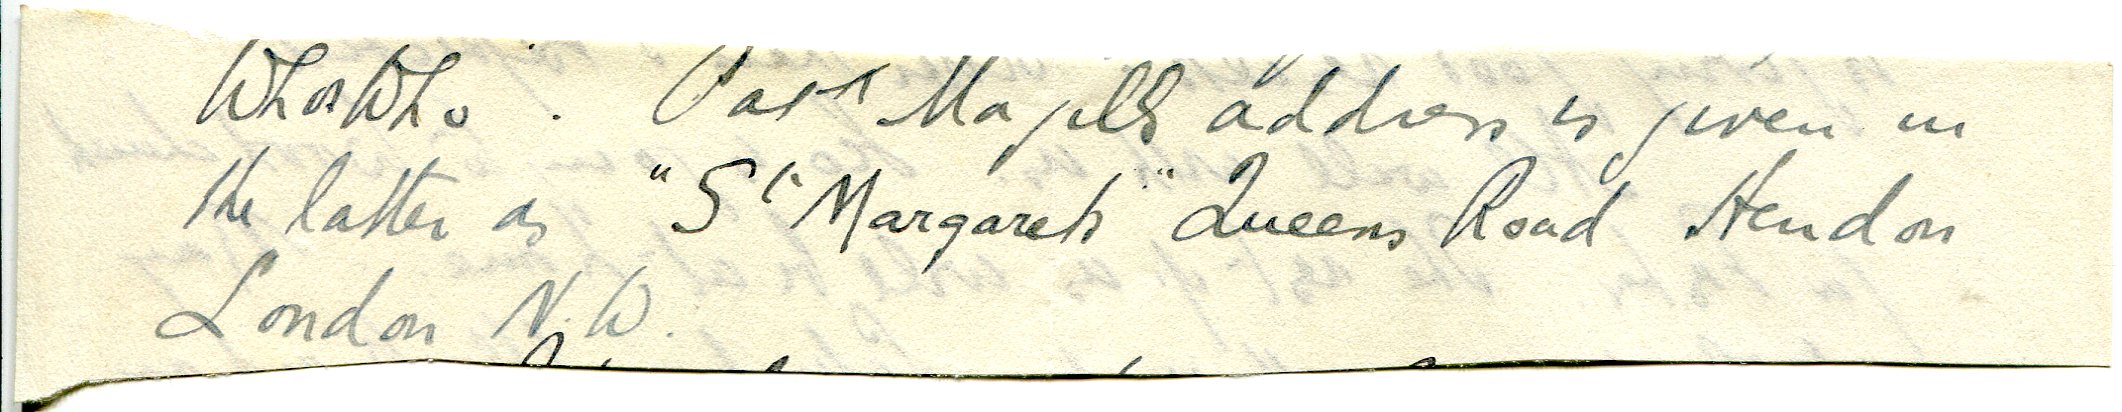 WhosWho". Capt Magills address is given in
the latter as "St Margarets" Queens Road Hendon
London N.W.